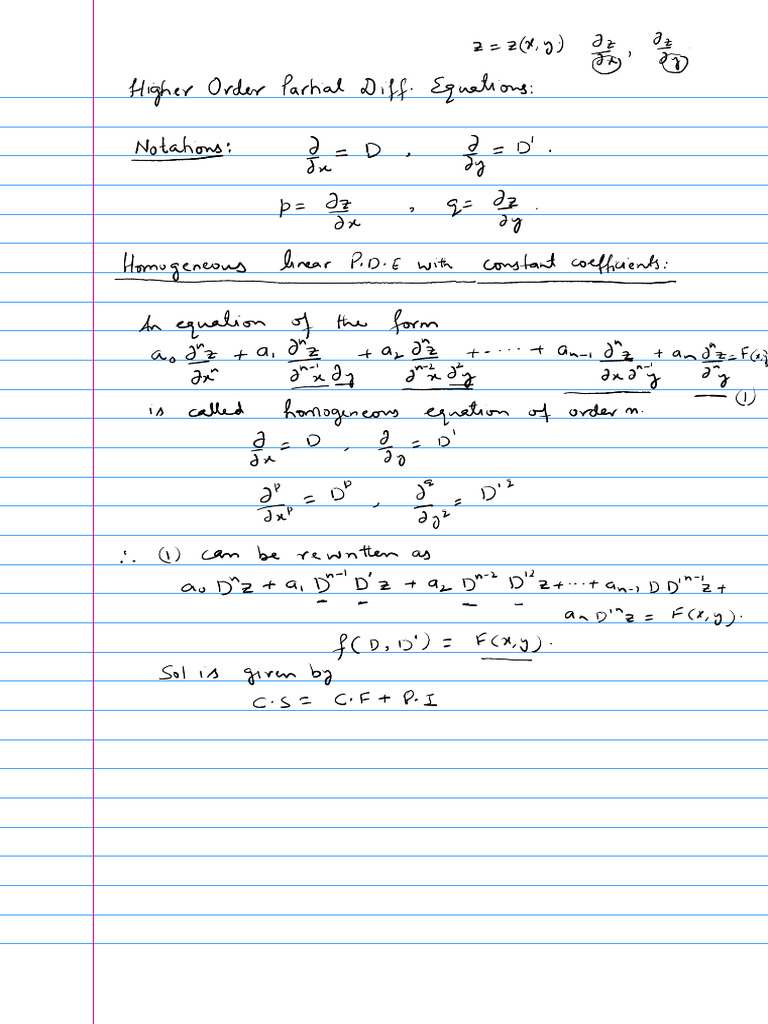 z = z(x, y) ∂z/∂x , ∂z/∂y
Higher Order Partial Diff. Equations:
Notations: ∂/∂x = D , ∂/∂y = D' .
p = ∂z/∂x , q = ∂z/∂y .
Homogeneous linear P.D.E with constant coefficients:
An equation of the form
a₀ ∂ⁿz/∂xⁿ + a₁ ∂ⁿz/∂ⁿ⁻¹x ∂y + a₂ ∂ⁿz/∂ⁿ⁻²x ∂²y + ---- + aₙ₋₁ ∂ⁿz/∂x ∂ⁿ⁻¹y + aₙ ∂ⁿz/∂ⁿy = F(x,y
— (1)
is called homogeneous equation of order n.
∂/∂x = D , ∂/∂y = D'
∂ᵖ/∂xᵖ = Dᵖ , ∂^q/∂y^q = D'^q
∴ (1) can be rewritten as
a₀ Dⁿz + a₁ Dⁿ⁻¹ D' z + a₂ Dⁿ⁻² D'² z + --- + aₙ₋₁ D D'ⁿ⁻¹ z +
aₙ D'ⁿ z = F(x, y).
f(D, D') = F(x, y).
Sol is given by
C.S = C.F + P.I